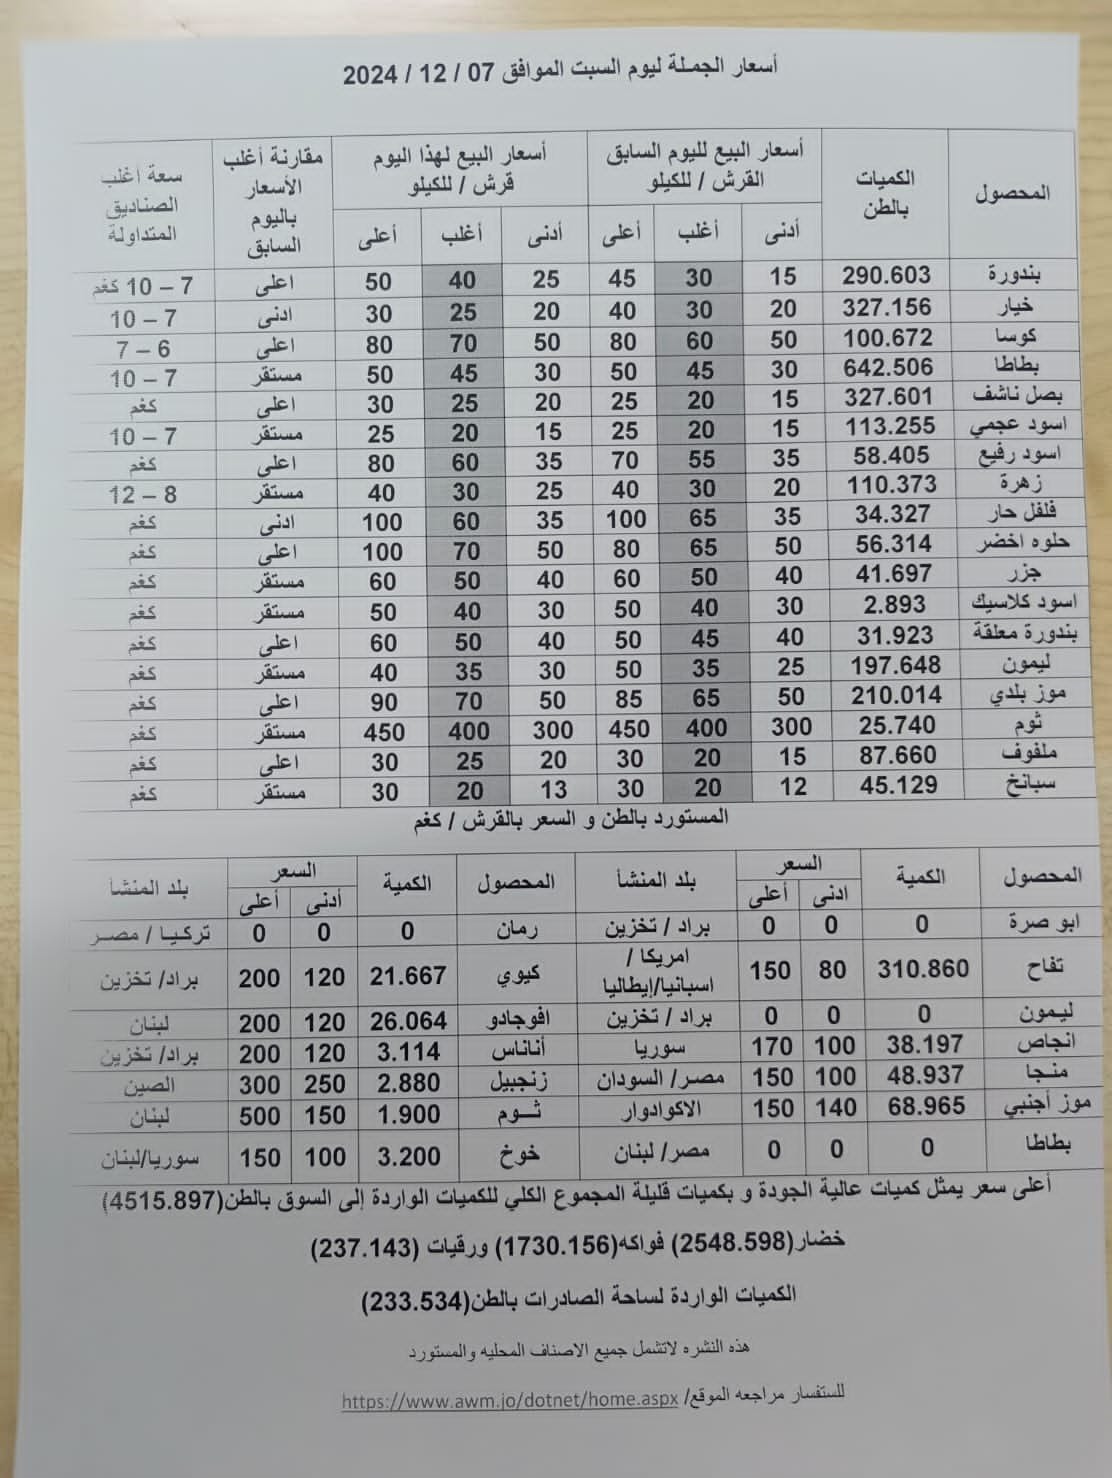 أسعار الجملة ليوم السبت الموافق 07 / 12 / 2024
المحصول الكميات بالطن أسعار البيع لليوم السابق القرش / للكيلو أسعار البيع لهذا اليوم قرش / للكيلو مقارنة أغلب الأسعار باليوم السابق سعة أغلب الصناديق المتداولة
أدنى أغلب أعلى أدنى أغلب أعلى
بندورة 290.603 15 30 45 25 40 50 اعلى 7 – 10 كغم
خيار 327.156 20 30 40 20 25 30 ادنى 7 – 10
كوسا 100.672 50 60 80 50 70 80 اعلى 6 – 7
بطاطا 642.506 30 45 50 30 45 50 مستقر 7 – 10
بصل ناشف 327.601 15 20 25 20 25 30 اعلى كغم
اسود عجمي 113.255 15 20 25 15 20 25 مستقر 7 – 10
اسود رفيع 58.405 35 55 70 35 60 80 اعلى كغم
زهرة 110.373 20 30 40 25 30 40 مستقر 8 – 12
فلفل حار 34.327 35 65 100 35 60 100 ادنى كغم
حلوه اخضر 56.314 50 65 80 50 70 100 اعلى كغم
جزر 41.697 40 50 60 40 50 60 مستقر كغم
اسود كلاسيك 2.893 30 40 50 30 40 50 مستقر كغم
بندورة معلقة 31.923 40 45 50 40 50 60 اعلى كغم
ليمون 197.648 25 35 50 30 35 40 مستقر كغم
موز بلدي 210.014 50 65 85 50 70 90 اعلى كغم
ثوم 25.740 300 400 450 300 400 450 مستقر كغم
ملفوف 87.660 15 20 30 20 25 30 اعلى كغم
سبانخ 45.129 12 20 30 13 20 30 مستقر كغم
المستورد بالطن و السعر بالقرش / كغم
المحصول الكمية السعر بلد المنشأ المحصول الكمية السعر بلد المنشأ
ادنى أعلى أدنى أعلى
ابو صرة 0 0 0 براد / تخزين رمان 0 0 0 تركيا / مصر
تفاح 310.860 80 150 امريكا / اسبانيا/إيطاليا كيوي 21.667 120 200 براد/ تخزين
ليمون 0 0 0 براد / تخزين افوجادو 26.064 120 200 لبنان
انجاص 38.197 100 170 سوريا أناناس 3.114 120 200 براد/ تخزين
منجا 48.937 100 150 مصر/ السودان زنجبيل 2.880 250 300 الصين
موز أجنبي 68.965 140 150 الاكوادوار ثــوم 1.900 150 500 لبنان
بطاطا 0 0 0 مصر/ لبنان خوخ 3.200 100 150 سوريا/لبنان
أعلى سعر يمثل كميات عالية الجودة و بكميات قليلة المجموع الكلي للكميات الواردة إلى السوق بالطن(4515.897)
خضار(2548.598) فواكه(1730.156) ورقيات (237.143)
الكميات الواردة لساحة الصادرات بالطن(233.534)
هذه النشره لاتشمل جميع الاصناف المحليه والمستورد
للستفسار مراجعه الموقع/ https://www.awm.jo/dotnet/home.aspx